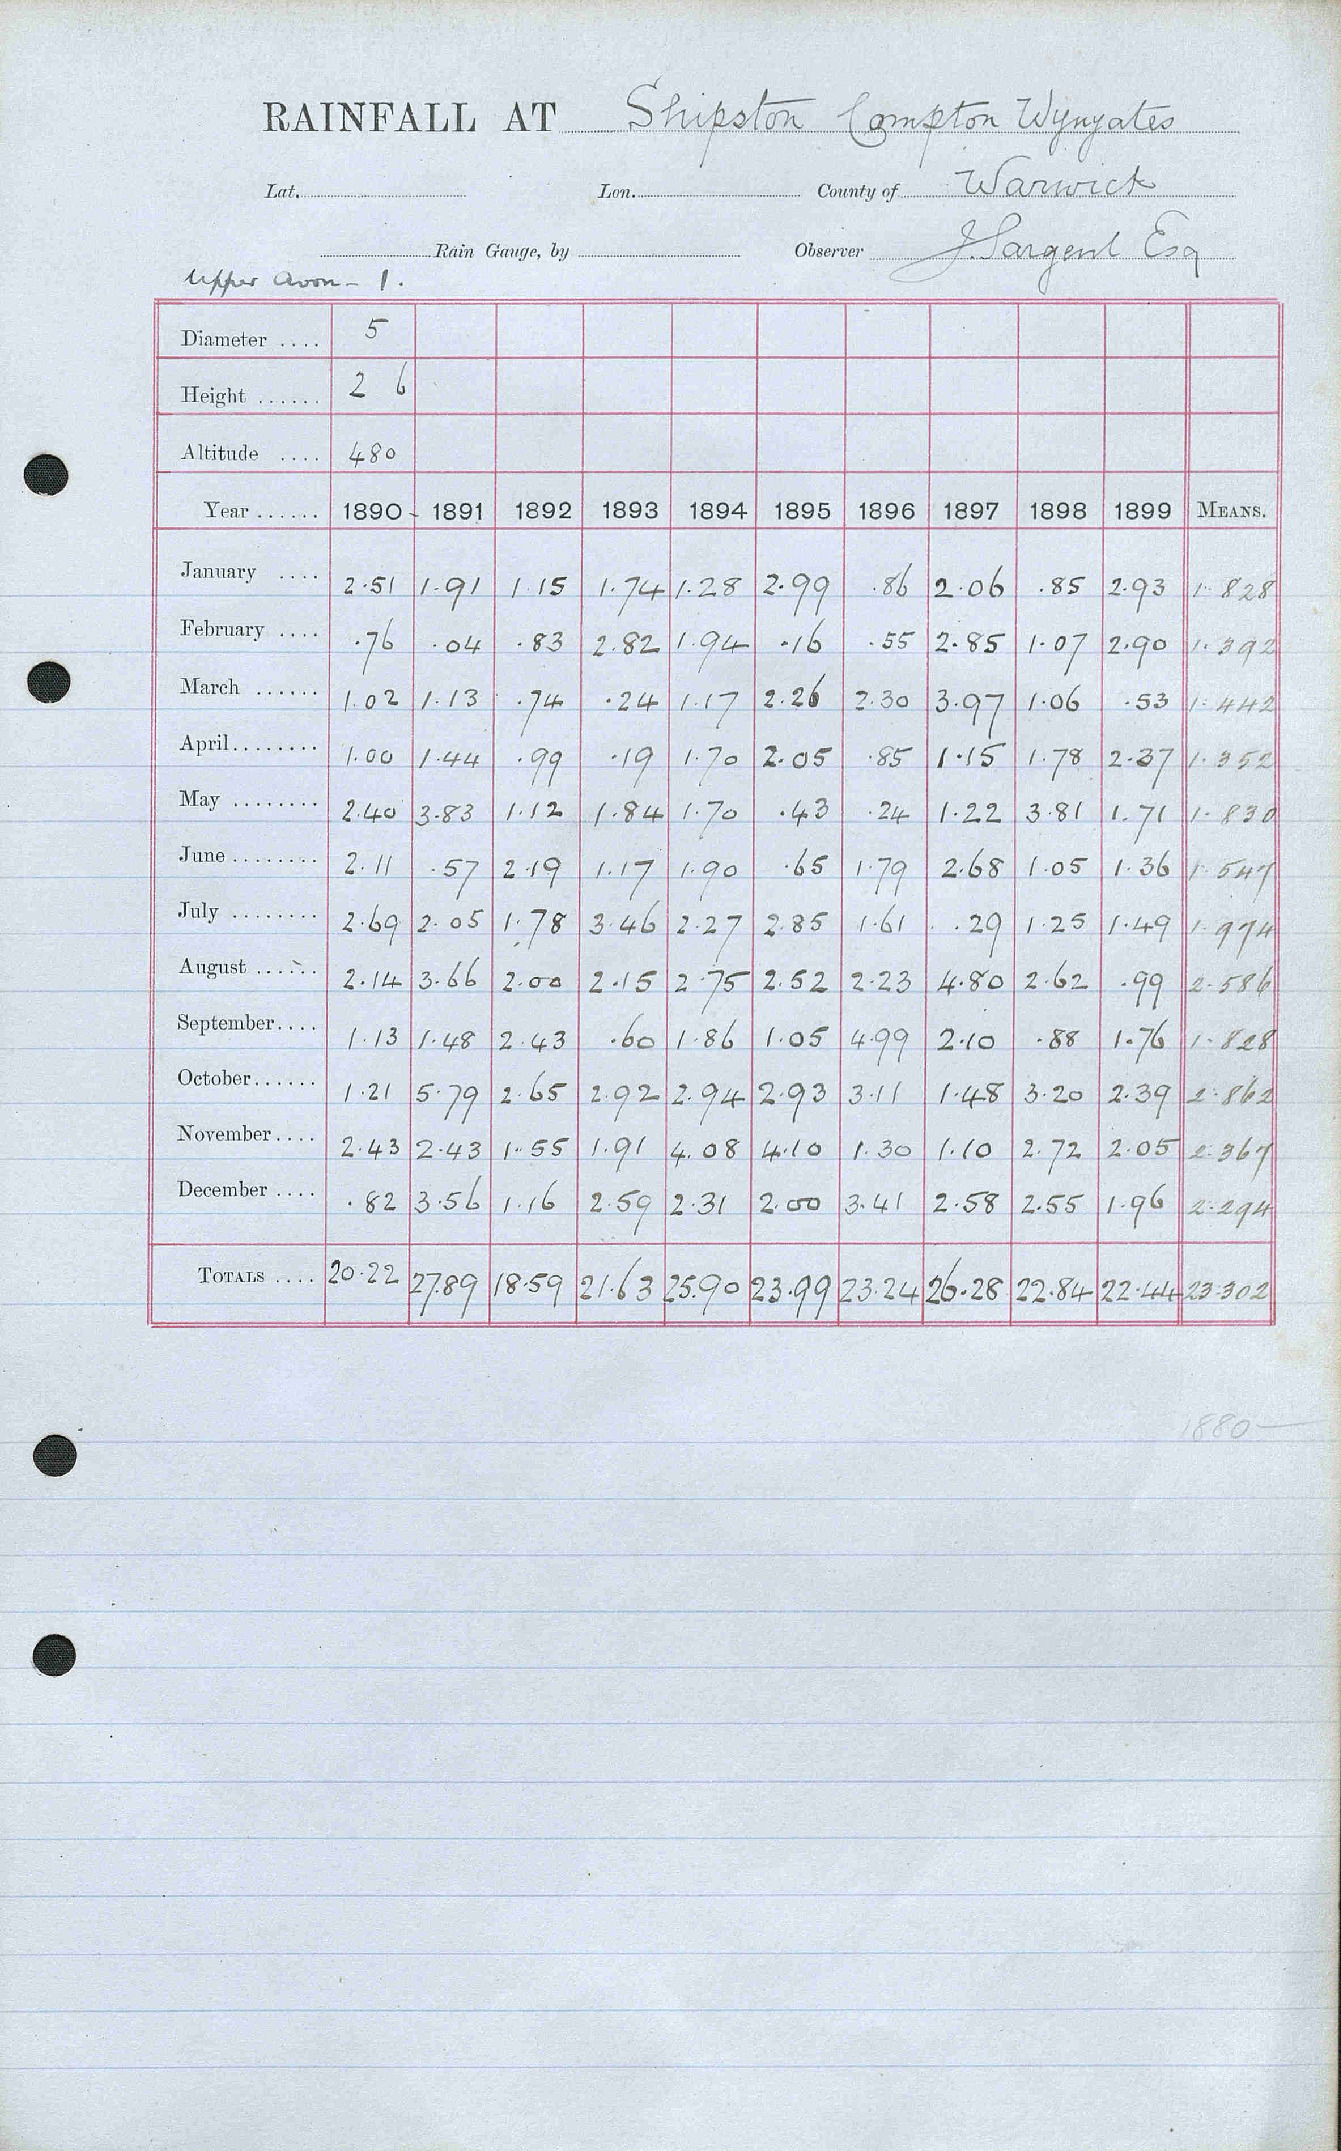 RAINFALL AT Shipston Compton Wynyates
Lat. Lon. County of Warwick
Rain Gauge, by Observer J. Sargent Esq
Upper Avon - 1.
Diameter .... 5
Height ...... 2 6
Altitude .... 480
Year ...... 1890 - 1891 1892 1893 1894 1895 1896 1897 1898 1899 MEANS.
January .... 2.51 1.91 1.15 1.74 1.28 2.99 .86 2.06 .85 2.93 1.828
February .... .76 .04 .83 2.82 1.94 .16 .55 2.85 1.07 2.90 1.392
March ...... 1.02 1.13 .74 .24 1.17 2.26 2.30 3.97 1.06 .53 1.442
April........ 1.00 1.44 .99 .19 1.70 2.05 .85 1.15 1.78 2.37 1.352
May ........ 2.40 3.83 1.12 1.84 1.70 .43 .24 1.22 3.81 1.71 1.830
June ........ 2.11 .57 2.19 1.17 1.90 .65 1.79 2.68 1.05 1.36 1.547
July ........ 2.69 2.05 1.78 3.46 2.27 2.85 1.61 .29 1.25 1.49 1.974
August ...... 2.14 3.66 2.00 2.15 2.75 2.52 2.23 4.80 2.62 .99 2.586
September.... 1.13 1.48 2.43 .60 1.86 1.05 4.99 2.10 .88 1.76 1.828
October...... 1.21 5.79 2.65 2.92 2.94 2.93 3.11 1.48 3.20 2.39 2.862
November.... 2.43 2.43 1.55 1.91 4.08 4.10 1.30 1.10 2.72 2.05 2.367
December .... .82 3.56 1.16 2.59 2.31 2.00 3.41 2.58 2.55 1.96 2.294
TOTALS .... 20.22 27.89 18.59 21.63 25.90 23.99 23.24 26.28 22.84 22.44 23.302
1880—